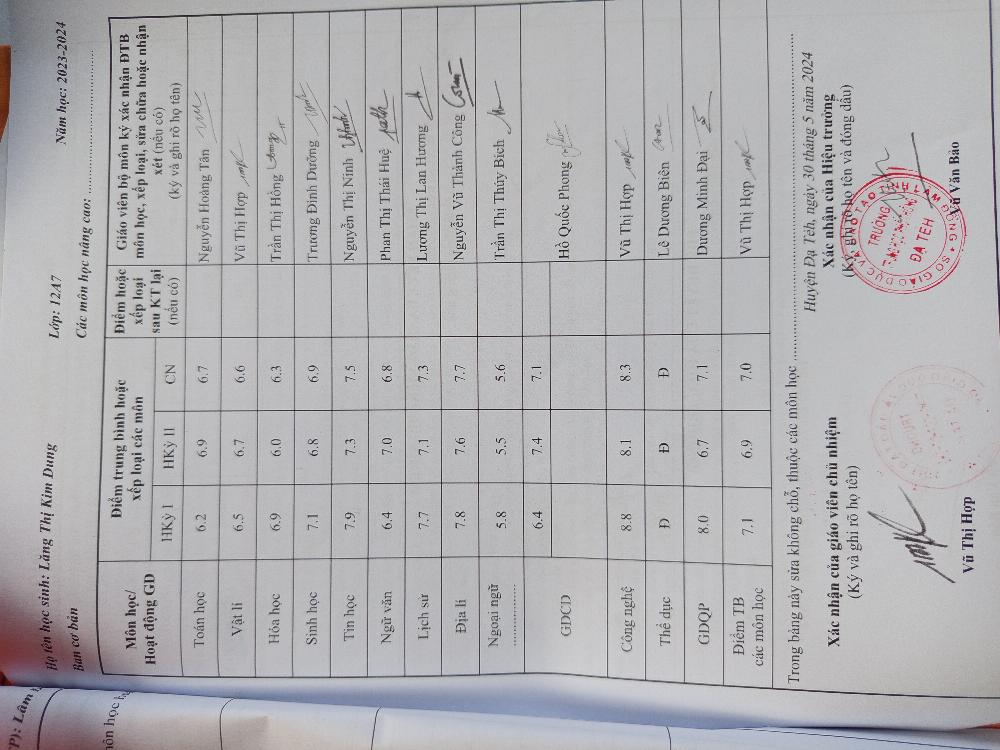 Năm học: 2023-2024
Họ tên học sinh: Lăng Thị Kim Dung Lớp: 12A7
Ban cơ bản Các môn học nâng cao:
Môn học/ Hoạt động GD
Điểm trung bình hoặc xếp loại các môn
HKỳ I HKỳ II CN
Điểm hoặc xếp loại sau KT lại (nếu có)
Giáo viên bộ môn ký xác nhận ĐTB môn học, xếp loại, sửa chữa hoặc nhận xét (nếu có) (ký và ghi rõ họ tên)
Toán học 6.2 6.9 6.7 Nguyễn Hoàng Tân
Vật lí 6.5 6.7 6.6 Vũ Thị Hợp
Hóa học 6.9 6.0 6.3 Trần Thị Hồng
Sinh học 7.1 6.8 6.9 Trương Đình Dưỡng
Tin học 7.9 7.3 7.5 Nguyễn Thị Ninh
Ngữ văn 6.4 7.0 6.8 Phan Thị Thái Huệ
Lịch sử 7.7 7.1 7.3 Lương Thị Lan Hương
Địa lí 7.8 7.6 7.7 Nguyễn Vũ Thành Công
Ngoại ngữ 5.8 5.5 5.6 Trần Thị Thúy Bích
GDCD 6.4 7.4 7.1 Hồ Quốc Phong
Công nghệ 8.8 8.1 8.3 Vũ Thị Hợp
Thể dục Đ Đ Đ Lê Dương Biên
GDQP 8.0 6.7 7.1 Dương Minh Đại
Điểm TB các môn học 7.1 6.9 7.0 Vũ Thị Hợp
Trong bảng này sửa không chỗ, thuộc các môn học
Huyện Đạ Tẻh, ngày 30 tháng 5 năm 2024
Xác nhận của giáo viên chủ nhiệm
(Ký và ghi rõ họ tên)
Vũ Thị Hợp
Xác nhận của Hiệu trưởng
(Ký, ghi rõ họ tên và đóng dấu)
SỞ GIÁO DỤC VÀ ĐÀO TẠO TỈNH LÂM ĐỒNG
TRƯỜNG
ĐẠ TẺH
Vũ Văn Bảo